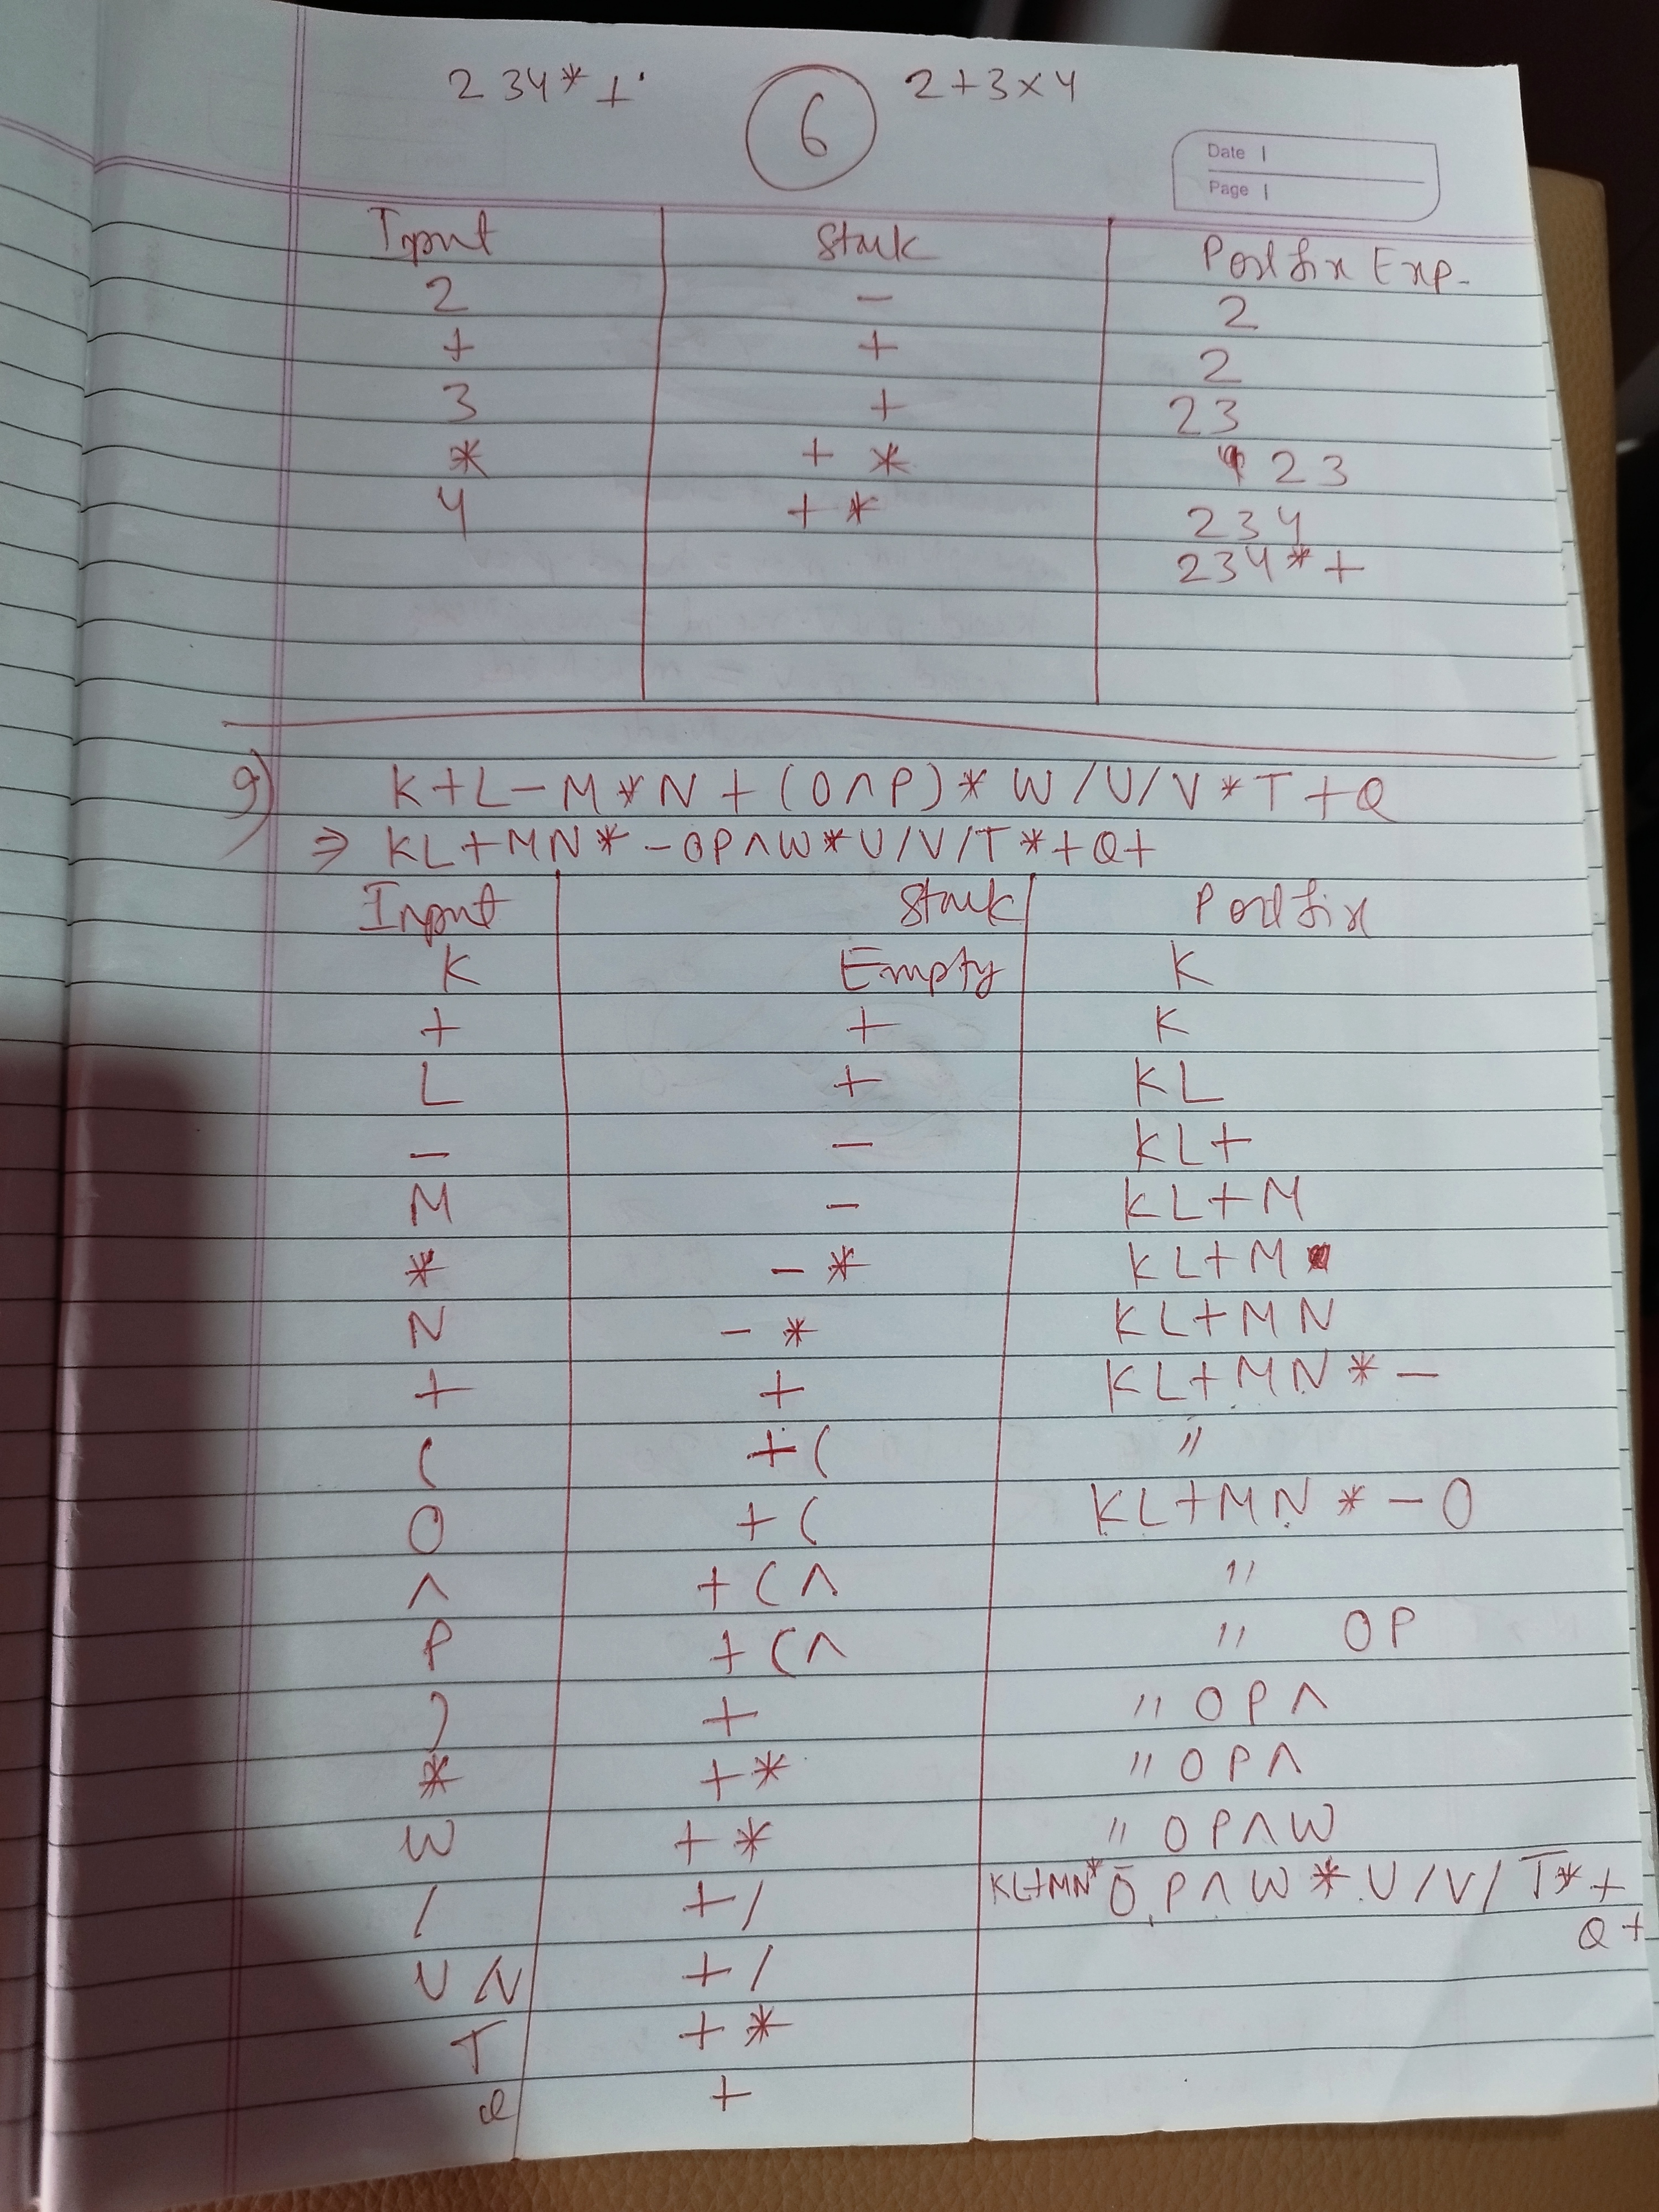 2 3 4 * + 6 2+3×4
Date
Page
Input Stack Postfix Exp.
2 – 2
+ + 2
3 + 23
* + * 23
4 + * 234
234*+
9) K+L-M*N+(O^P)*W/U/V*T+Q
⇒ KL+MN*-OP^W*U/V/T*+Q+
Input Stack Postfix
K Empty K
+ + K
L + KL
- - KL+
M - KL+M
* - * KL+M
N - * KL+MN
+ + KL+MN*-
( +( "
O +( KL+MN*-O
^ +(^ "
P +(^ " OP
) + " OP^
* +* " OP^
W +* " OP^W
/ +/ KL+MN*-OP^W*U/V/T*+
Q+
U /V +/
T +*
Q +